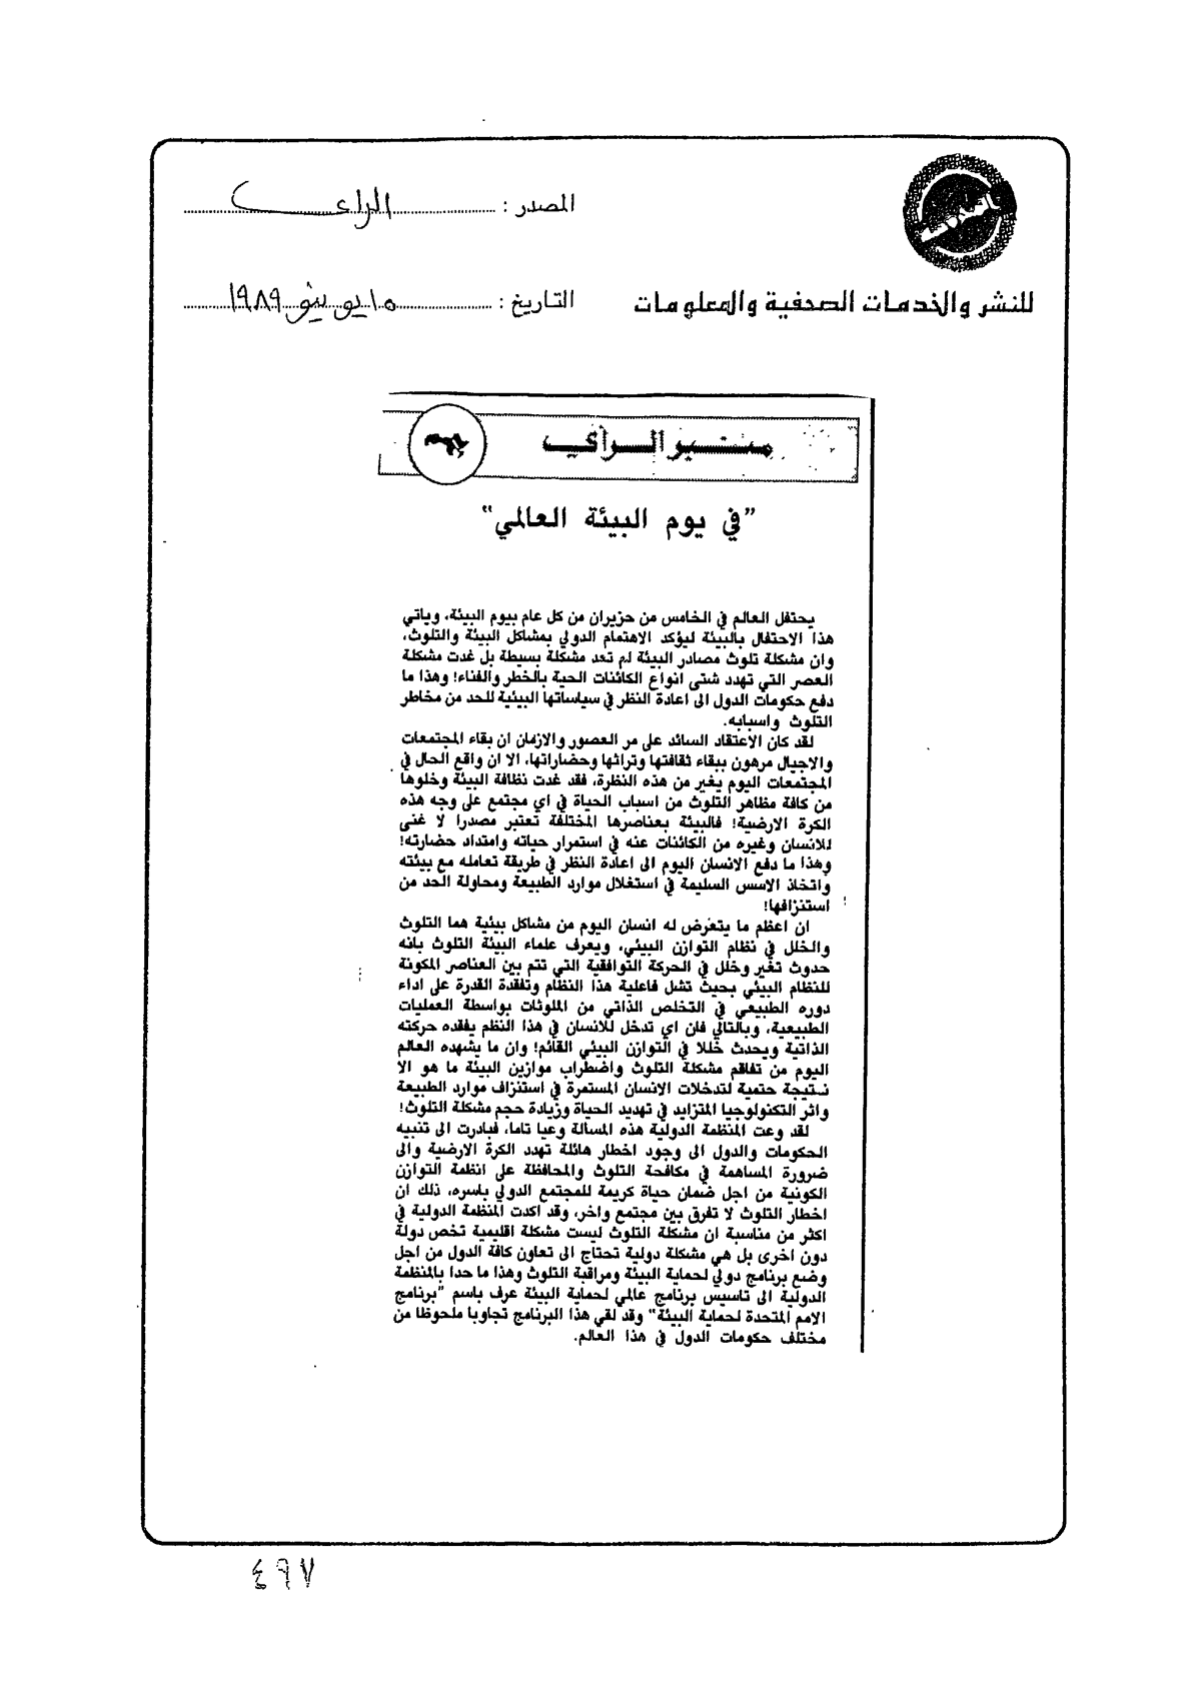 المصدر : الراى
للنشر والخدمات الصحفية والمعلومات
التاريخ : ١٥ يونيو ١٩٨٩
منبر الرأي
”في يوم البيئة العالمي“
يحتفل العالم في الخامس من حزيران من كل عام بيوم البيئة، وياتي
هذا الاحتفال بالبيئة ليؤكد الاهتمام الدولي بمشاكل البيئة والتلوث،
وان مشكلة تلوث مصادر البيئة لم تعد مشكلة بسيطة بل غدت مشكلة
العصر التي تهدد شتى انواع الكائنات الحية بالخطر والفناء! وهذا ما
دفع حكومات الدول الى اعادة النظر في سياساتها البيئية للحد من مخاطر
التلوث واسبابه.
لقد كان الاعتقاد السائد على مر العصور والازمان ان بقاء المجتمعات
والاجيال مرهون ببقاء ثقافتها وتراثها وحضاراتها، الا ان واقع الحال في
المجتمعات اليوم يغير من هذه النظرة، فقد غدت نظافة البيئة وخلوها
من كافة مظاهر التلوث من اسباب الحياة في اي مجتمع على وجه هذه
الكرة الارضية! فالبيئة بعناصرها المختلفة تعتبر مصدرا لا غنى
للانسان وغيره من الكائنات عنه في استمرار حياته وامتداد حضارته!
وهذا ما دفع الانسان اليوم الى اعادة النظر في طريقة تعامله مع بيئته
واتخاذ الاسس السليمة في استغلال موارد الطبيعة ومحاولة الحد من
استنزافها!
ان اعظم ما يتعرض له انسان اليوم من مشاكل بيئية هما التلوث
والخلل في نظام التوازن البيئي، ويعرف علماء البيئة التلوث بانه
حدوث تغير وخلل في الحركة التوافقية التي تتم بين العناصر المكونة
للنظام البيئي بحيث تشل فاعلية هذا النظام وتفقدة القدرة على اداء
دوره الطبيعي في التخلص الذاتي من الملوثات بواسطة العمليات
الطبيعية، وبالتالي فان اي تدخل للانسان في هذا النظم يفقده حركته
الذاتية ويحدث خللا في التوازن البيئي القائم! وان ما يشهده العالم
اليوم من تفاقم مشكلة التلوث واضطراب موازين البيئة ما هو الا
نتيجة حتمية لتدخلات الانسان المستمرة في استنزاف موارد الطبيعة
واثر التكنولوجيا المتزايد في تهديد الحياة وزيادة حجم مشكلة التلوث!
لقد وعت المنظمة الدولية هذه المسألة وعيا تاما، فبادرت الى تنبيه
الحكومات والدول الى وجود اخطار هائلة تهدد الكرة الارضية والى
ضرورة المساهمة في مكافحة التلوث والمحافظة على انظمة التوازن
الكونية من اجل ضمان حياة كريمة للمجتمع الدولي باسره، ذلك ان
اخطار التلوث لا تفرق بين مجتمع واخر، وقد اكدت المنظمة الدولية في
اكثر من مناسبة ان مشكلة التلوث ليست مشكلة اقليمية تخص دولة
دون اخرى بل هي مشكلة دولية تحتاج الى تعاون كافة الدول من اجل
وضع برنامج دولي لحماية البيئة ومراقبة التلوث وهذا ما حدا بالمنظمة
الدولية الى تاسيس برنامج عالمي لحماية البيئة عرف باسم ”برنامج
الامم المتحدة لحماية البيئة“ وقد لقي هذا البرنامج تجاوبا ملحوظا من
مختلف حكومات الدول في هذا العالم.
٤٩٧